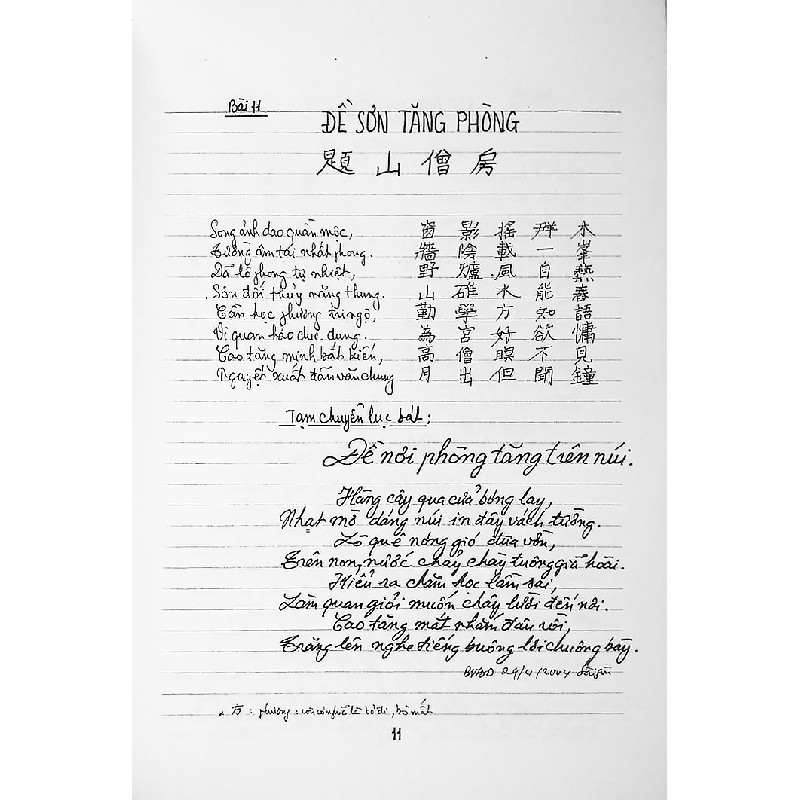 Bài 11
ĐỀ SƠN TĂNG PHÒNG
題山僧房
Song ảnh dao quần mộc, 窗影搖群木
Tường âm tái nhất phong. 牆陰載一峯
Dã lô phong tự nhiệt, 野爐風自熱
Sơn đối thủy năng thung. 山碓水能舂
Cần học phương tri ngộ, 勤學方知語
Vi quan hảo dục dung. 為官好欲慵
Cao tăng minh bất kiến, 高僧瞑不見
Nguyệt xuất đán văn chung 月出但聞鐘
Tạm chuyển lục bát:
Đề nơi phòng tăng trên núi.
Hàng cây qua cửa bóng lay,
Nhạt mờ dáng núi in đầy vách tường.
Lò quê nóng gió đưa vờn,
Trên non, nước chảy chày tuông giã hoài.
Hiểu ra chăm học lầm sai,
Làm quan giỏi muốn chây lười đến nơi.
Cao tăng mắt nhắm đâu rồi,
Trăng lên nghe tiếng buông lơi chuông bay.
24/4/2004 Sài gòn
方 : phương : bỏ đi, bỏ mất
11